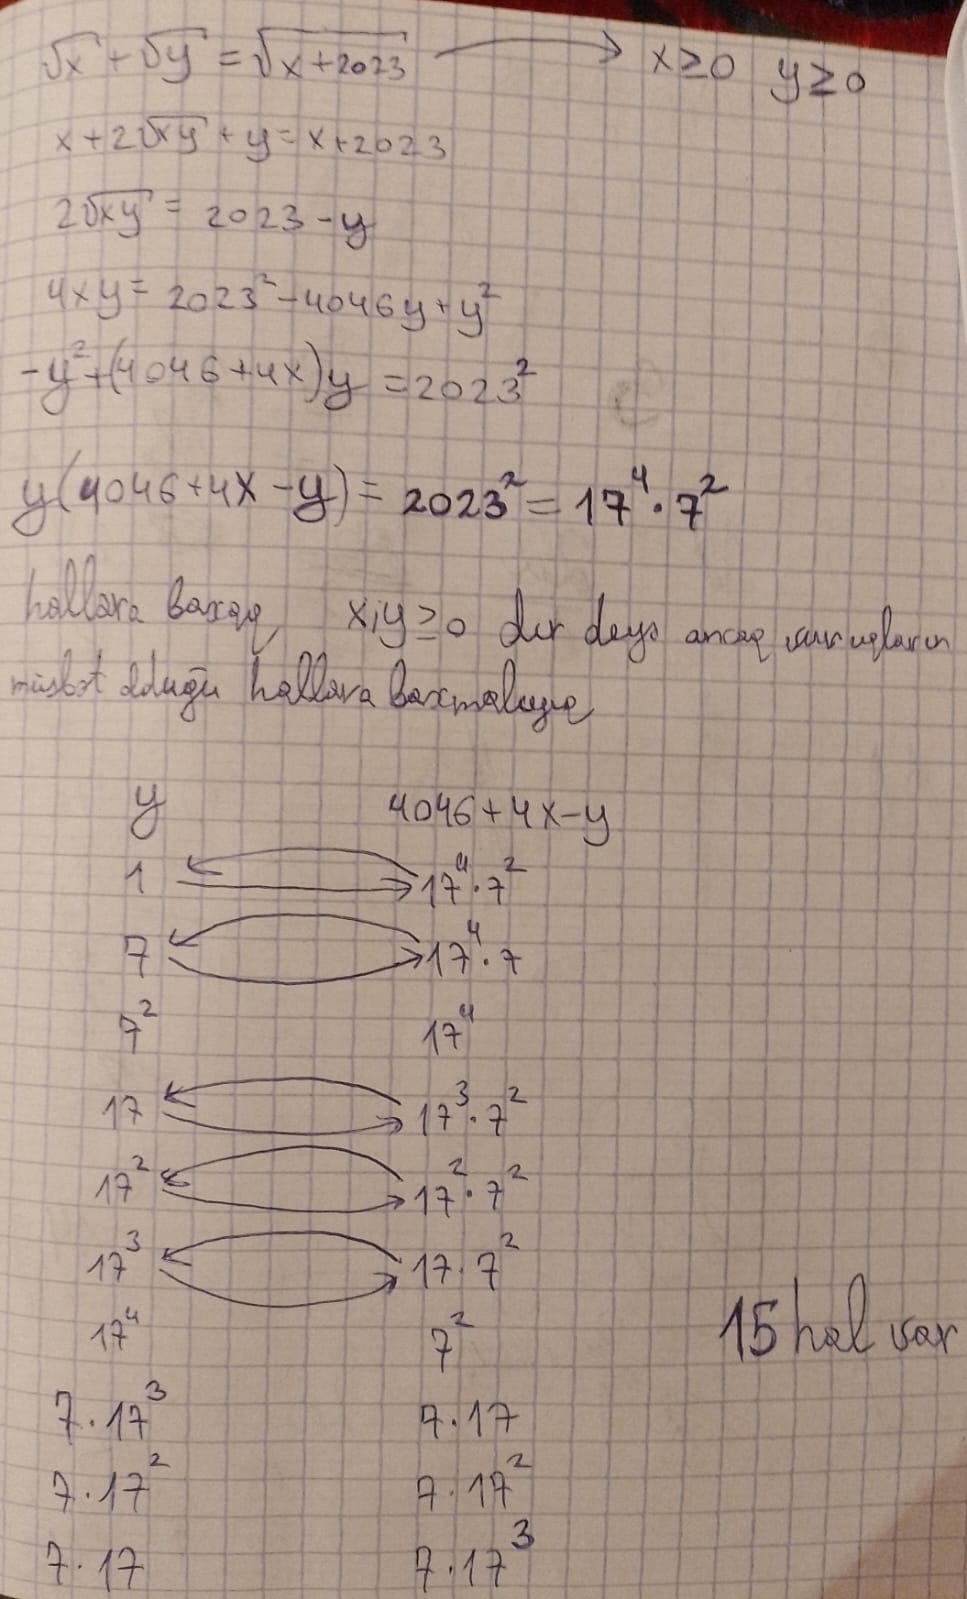 √x + √y = √x+2023 → x≥0 y≥0
x+2√xy + y = x+2023
2√xy = 2023-y
4xy = 2023² - 4046y + y²
-y² + (4046+4x)y = 2023²
y(4046+4x-y) = 2023² = 17⁴·7²
hallara baxaq x;y≥0 dır deyə ancaq vuruqların
müsbət olduğu hallara baxmalıyıq
y 4046+4x-y
1 17⁴·7²
7 17⁴·7
7² 17⁴
17 17³·7²
17² 17²·7²
17³ 17·7²
17⁴ 7²
15 hal var
7·17³ 7·17
7·17² 7·17²
7·17 7·17³